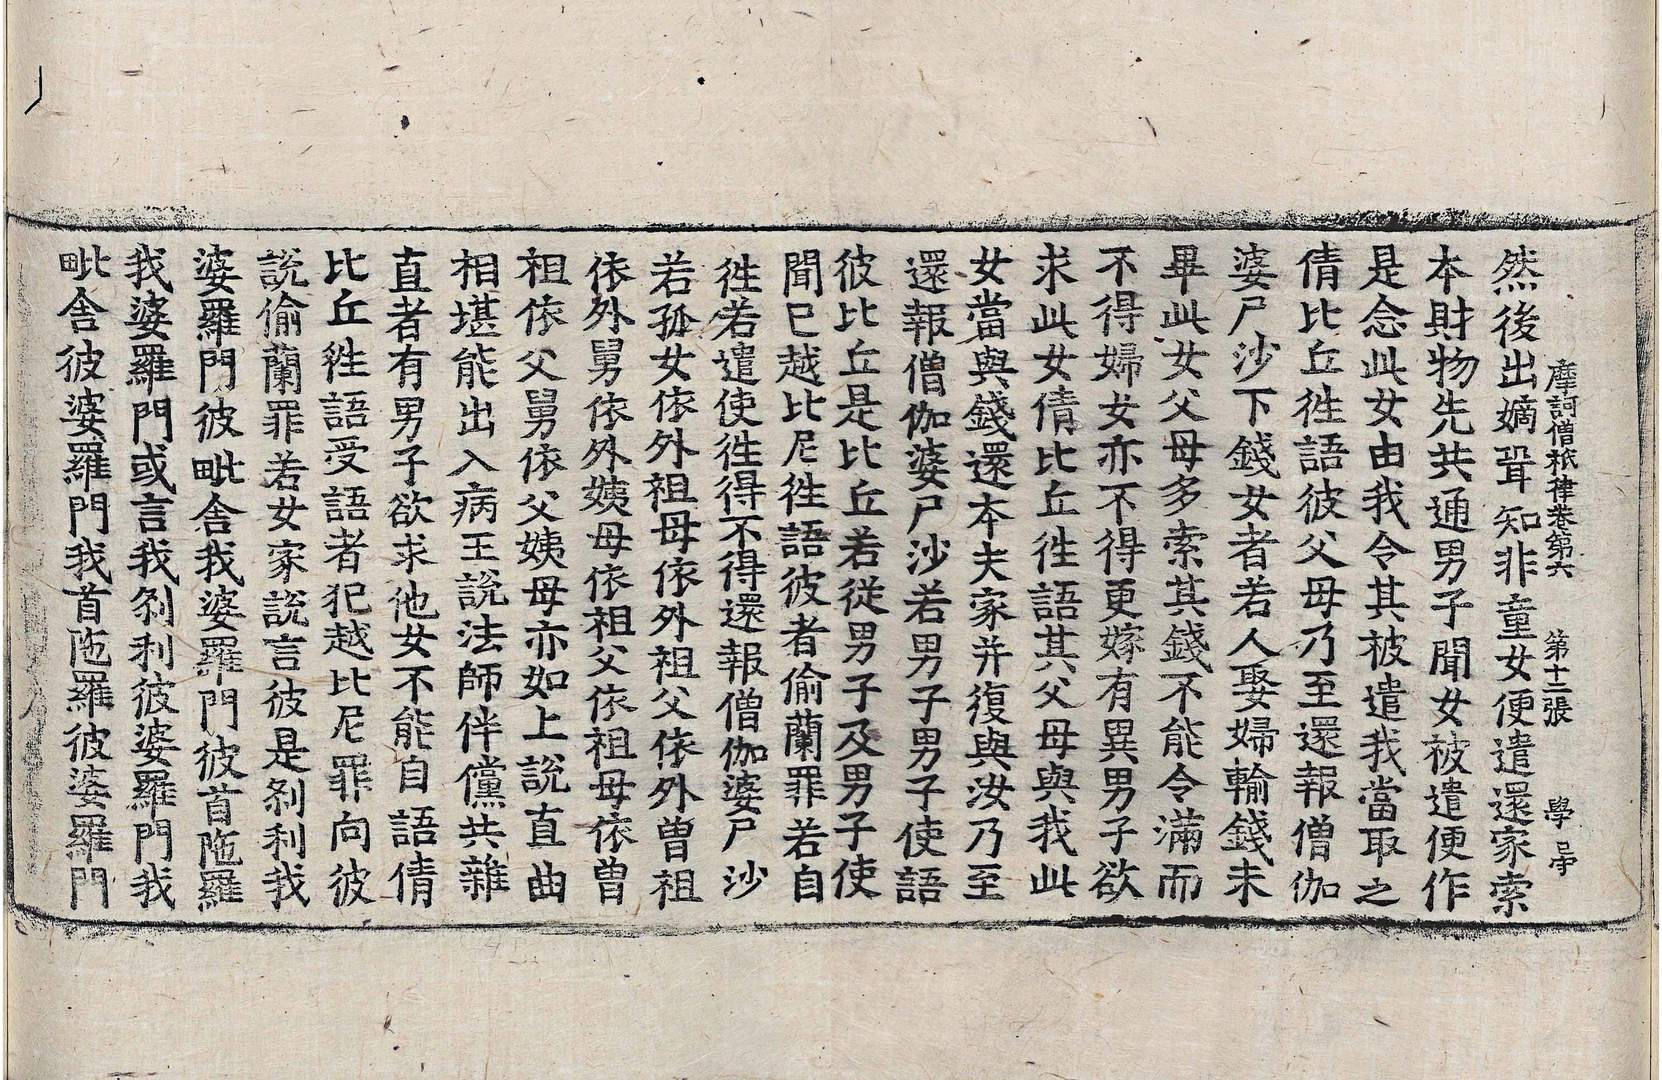 摩訶僧祇律卷第六 第十二張 學号
然後出嫡聟知非童女便遣還家索
本財物先共通男子聞女被遣便作
是念此女由我令其被遣我當取之
倩比丘往語彼父母乃至還報僧伽
婆尸沙下錢女者若人娶婦輸錢未
畢此女父母多索其錢不能令滿而
不得婦女亦不得更嫁有異男子欲
求此女倩比丘往語其父母與我此
女當與錢還本夫家并復與汝乃至
還報僧伽婆尸沙若男子男子使語
彼比丘是比丘若從男子及男子使
聞已越比尼往語彼者偷蘭罪若自
往若遣使往得不得還報僧伽婆尸沙
若孤女依外祖母依外祖父依外曾祖
依外舅依外姨母依祖父依祖母依曾
祖依父舅依父姨母亦如上說直曲
相堪能出入病王說法師伴儻共雜
直者有男子欲求他女不能自語倩
比丘往語受語者犯越比尼罪向彼
說偷蘭罪若女家說言彼是剎利我
婆羅門彼毗舍我婆羅門彼首陁羅
我婆羅門或言我剎利彼婆羅門我
毗舍彼婆羅門我首陁羅彼婆羅門